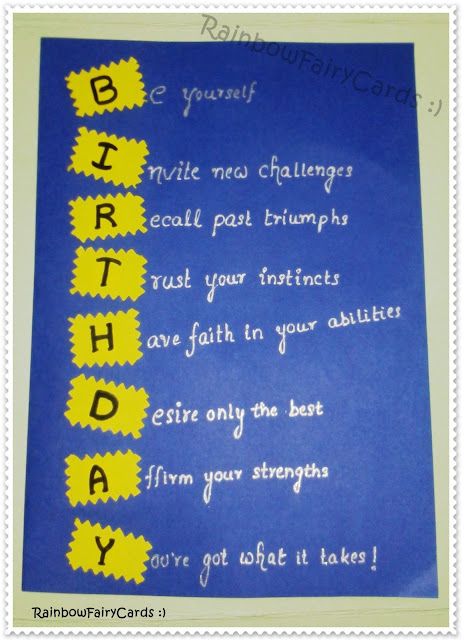 RainbowFairyCards :)
Be yourself
Invite new challenges
Recall past triumphs
Trust your instincts
Have faith in your abilities
Desire only the best
Affirm your strengths
You're got what it takes!
RainbowFairyCards :)